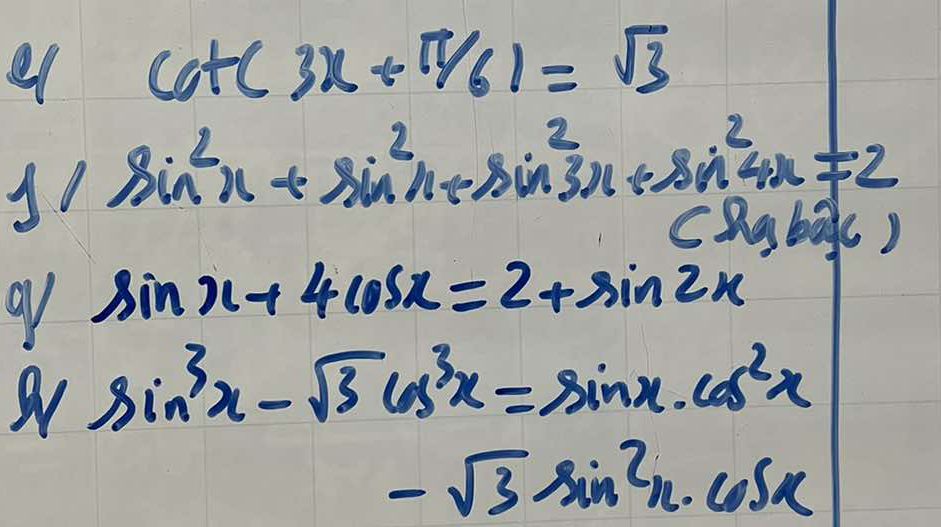 e/ cot( 3x + π/6 ) = √3
f/ sin²x + sin²x + sin²3x + sin²4x = 2
(hạ bậc)
g/ sin x + 4 cos x = 2 + sin 2x
h/ sin³x - √3 cos³x = sin x . cos²x
- √3 sin²x . cos x